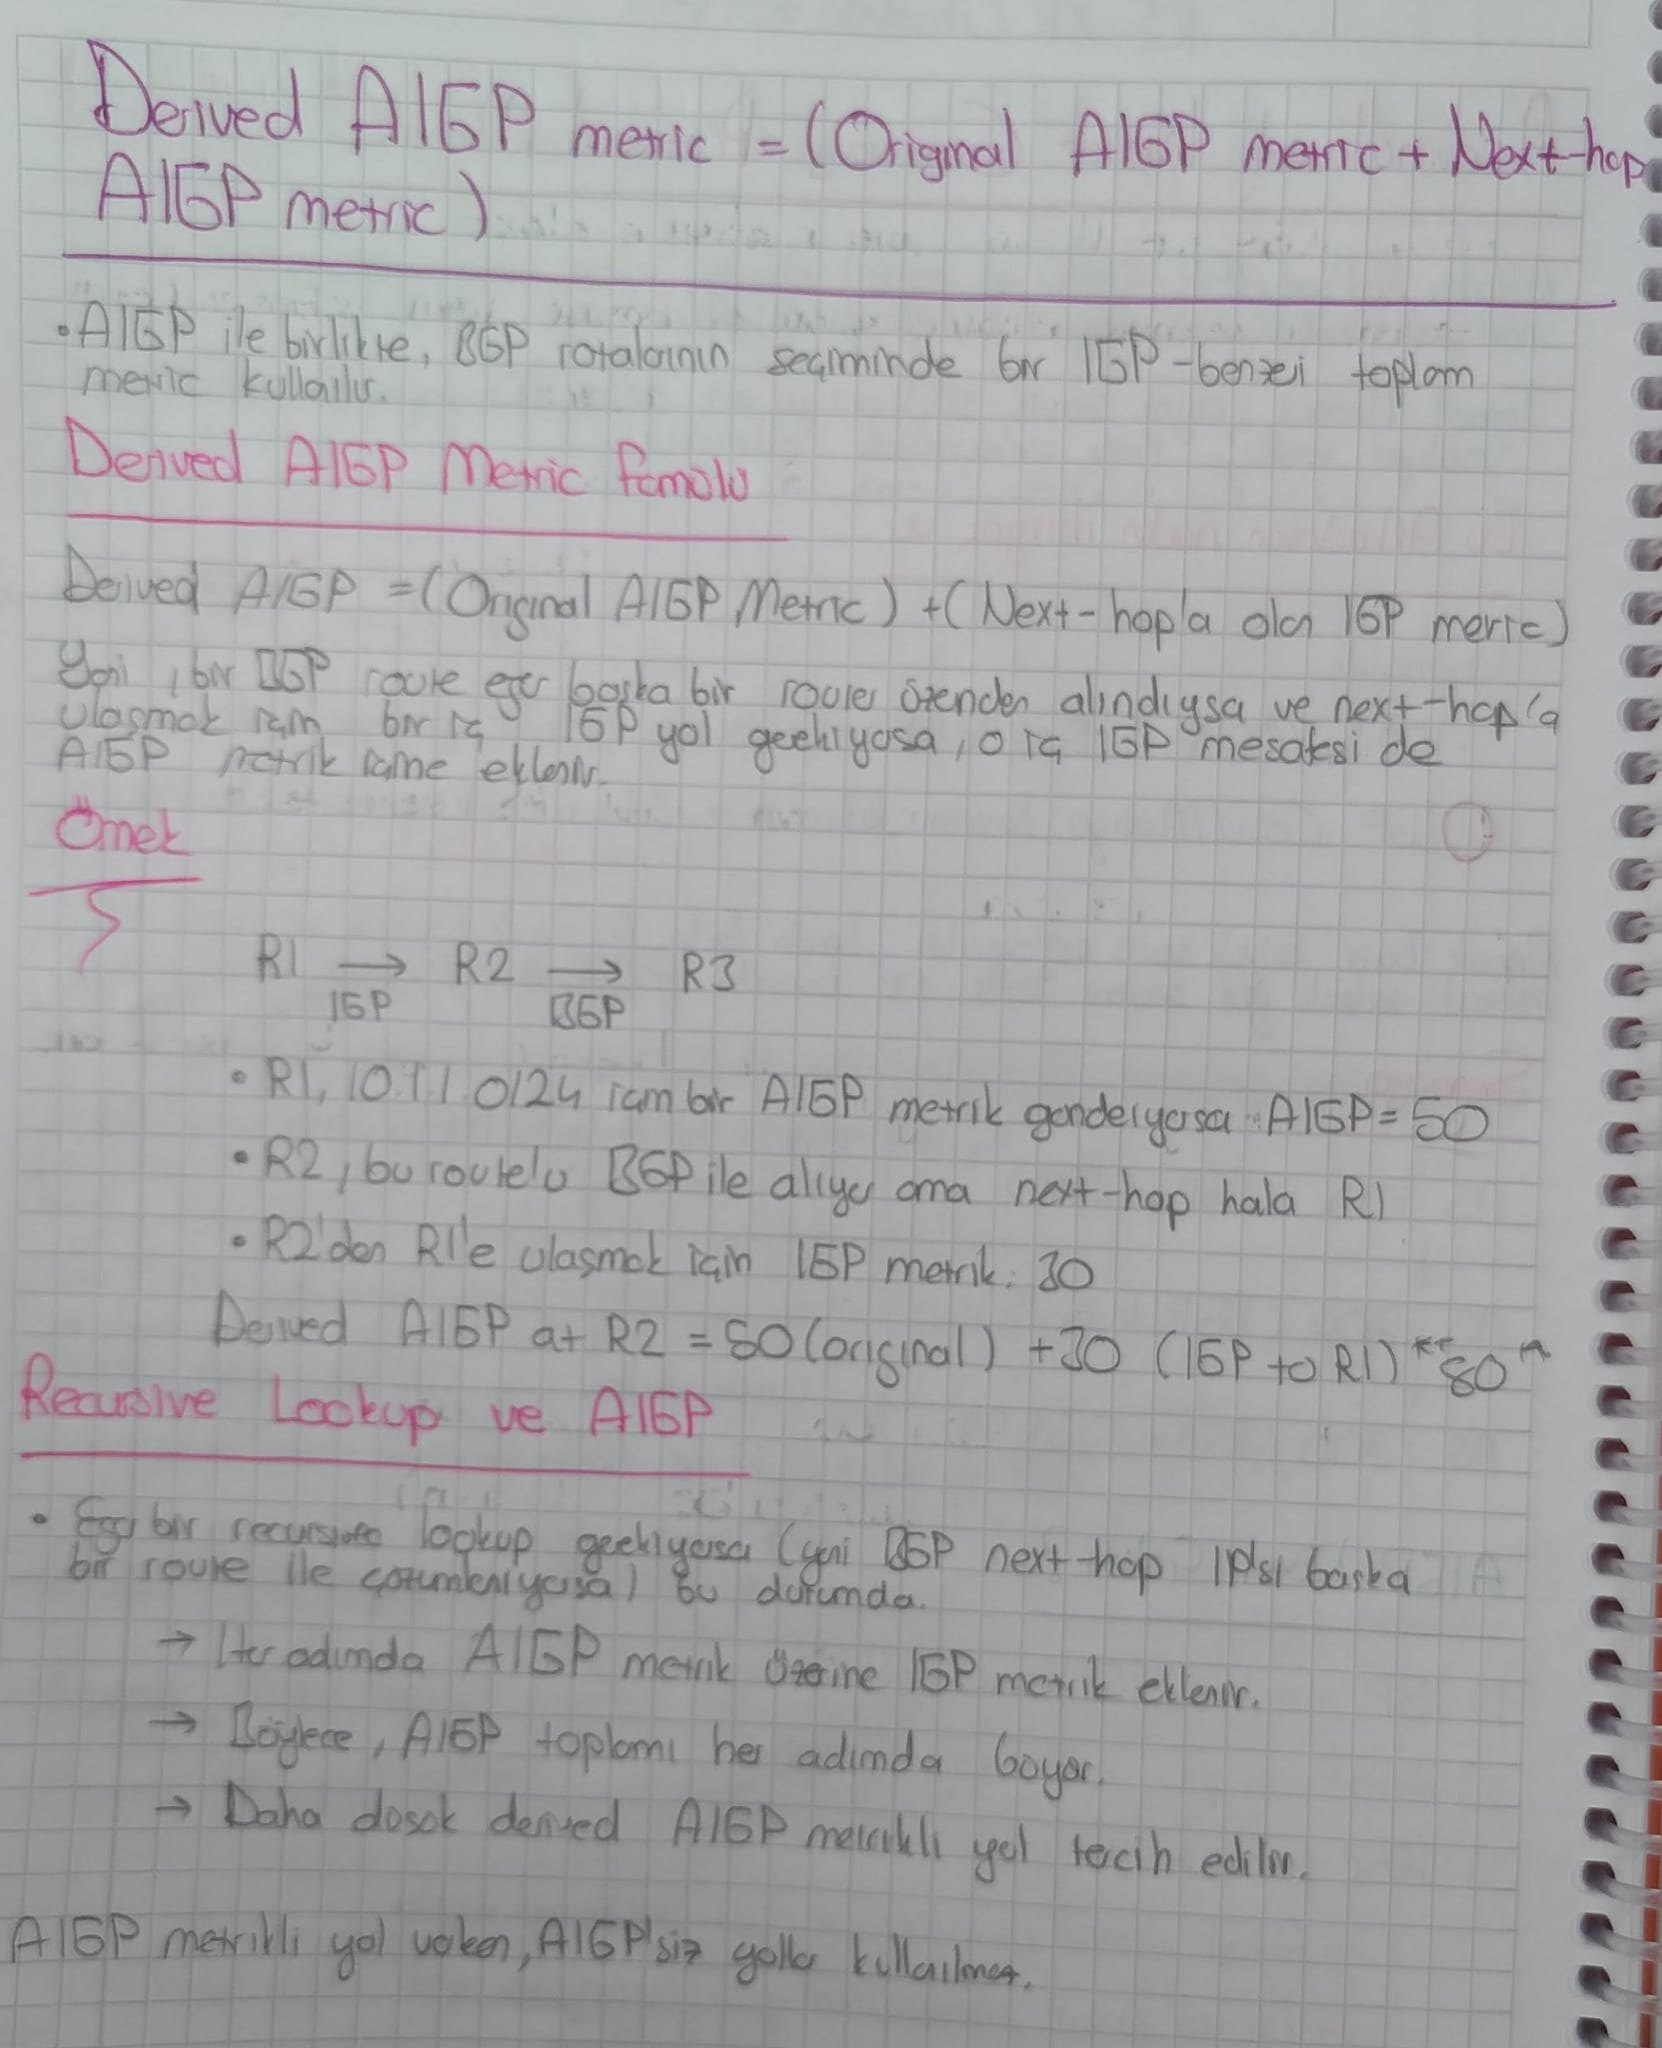 Derived AIGP metric = (Original AIGP metric + Next-hop
AIGP metric)
• AIGP ile birlikte, BGP rotalarının seçiminde bir IGP-benzeri toplam
metric kullanılır.
Derived AIGP Metric Formülü
Derived AIGP = (Original AIGP Metric) + (Next-hop'a olan IGP metric)
Yani, bir BGP route eğer başka bir router üzerinden alındıysa ve next-hop'a
ulaşmak için bir iç IGP yol gerekiyorsa, o iç IGP mesafesi de
AIGP metrik içine eklenir.
Örnek
R1 → R2 → R3
IGP BGP
• R1, 10.1.1.0/24 için bir AIGP metrik gönderiyorsa AIGP = 50
• R2, bu route'u BGP ile alıyor ama next-hop hala R1
• R2'den R1'e ulaşmak için IGP metrik: 30
Derived AIGP at R2 = 50 (original) + 30 (IGP to R1) 80
Recursive Lookup ve AIGP
• Eğer bir recursive lookup gerekiyorsa (yani BGP next-hop IP'si başka
bir route ile çözümleniyorsa) bu durumda.
→ Her adımda AIGP metrik üzerine IGP metrik eklenir.
→ Böylece, AIGP toplamı her adımda büyür.
→ Daha düşük derived AIGP metrikli yol tercih edilir.
AIGP metrikli yol varken, AIGP'siz yollar kullanılmaz.